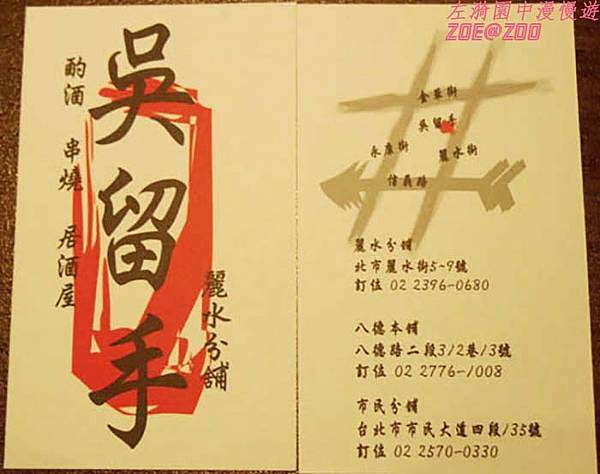 左漪園中漫慢遊
ZOE@ZOO
酌酒 串燒 居酒屋
吳留手
麗水分舖
金華街
吳留手
永康街
麗水街
信義路
麗水分舖
北市麗水街5-9號
訂位 02 2396-0680
八德本舖
八德路二段312巷13號
訂位 02 2776-1008
市民分舖
台北市市民大道四段135號
訂位 02 2570-0330